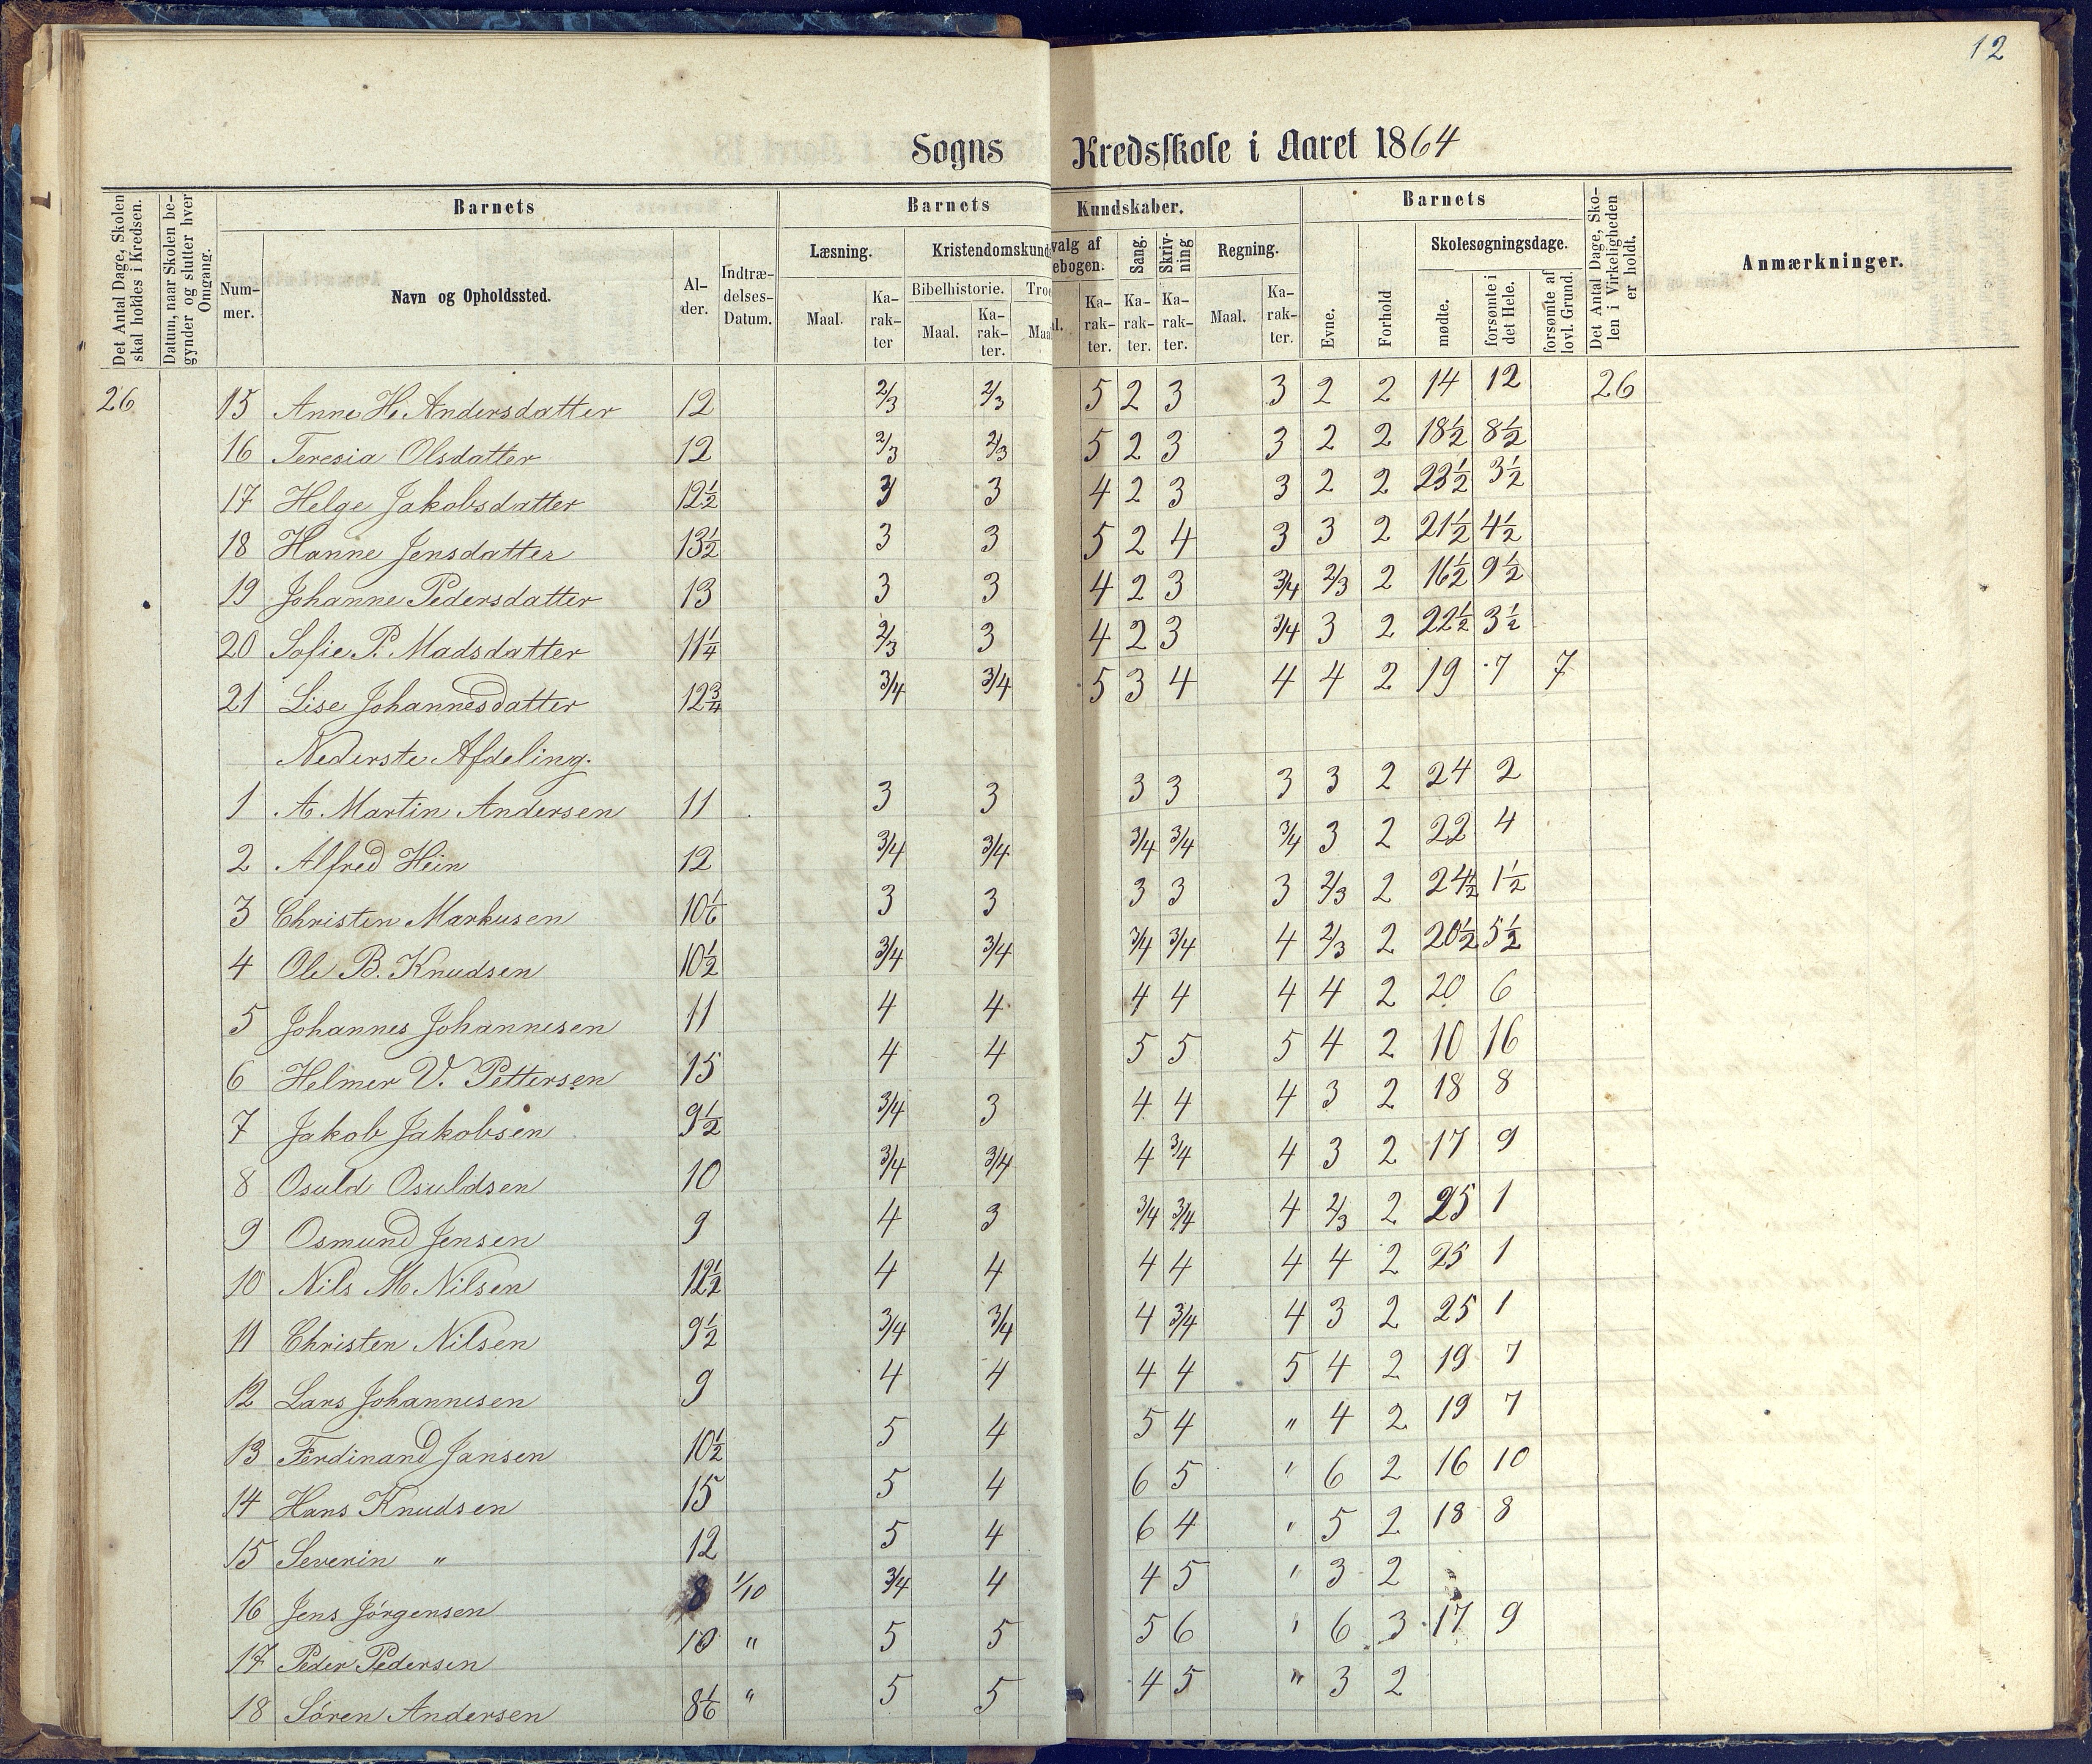 12
Sogns Kredsskole i Aaret 1864
Det Antal Dage, Skolen skal holdes i Kredsen.
Datum, naar Skolen begynder og slutter hver Omgang.
Barnets
Num-mer.
Navn og Opholdssted.
Al-der.
Indtræ-delses-Datum.
Barnets Kundskaber.
Læsning.
Maal.
Ka-rak-ter
Kristendomskund
Bibelhistorie.
Maal.
Ka-rak-ter.
Troe
Maal
valg af
ebogen.
l.
Ka-rak-ter.
Sang.
Ka-rak-ter.
Skriv-ning
Ka-rak-ter.
Regning.
Maal.
Ka-rak-ter.
Barnets
Evne.
Forhold
Skolesøgningsdage.
mødte.
forsømte i det Hele.
forsømte af lovl. Grund.
Det Antal Dage, Skolen i Virkeligheden er holdt.
Anmærkninger.
26 15 Anne H. Andersdatter 12 2/3 2/3 5 2 3 3 2 2 14 12 26
16 Teresia Olsdatter 12 2/3 2/3 5 2 3 3 2 2 18½ 8½
17 Helge Jakobsdatter 12½ 3 3 4 2 3 3 2 2 23½ 3½
18 Hanne Jensdatter 13½ 3 3 5 2 4 3 3 2 21½ 4½
19 Johanne Pedersdatter 13 3 3 4 2 3 3/4 2/3 2 16½ 9½
20 Sofie P. Madsdatter 11¼ 2/3 3 4 2 3 3/4 3 2 22½ 3½
21 Lise Johannesdatter 12¾ 3/4 3/4 5 3 4 4 4 2 19 7 7
Nederste Afdeling.
1 A. Martin Andersen 11 3 3 3 3 3 3 2 24 2
2 Alfred Hein 12 3/4 3/4 3/4 3/4 3/4 3 2 22 4
3 Christen Markusen 10 1/6 3 3 3 3 3 2/3 2 24½ 1½
4 Ole B. Knudsen 10½ 3/4 3/4 3/4 3/4 4 2/3 2 20½ 5½
5 Johannes Johannesen 11 4 4 4 4 4 4 2 20 6
6 Helmer V. Pettersen 15 4 4 5 5 5 4 2 10 16
7 Jakob Jakobsen 9½ 3/4 3 4 4 4 3 2 18 8
8 Osuld Osuldsen 10 3/4 3/4 4 3/4 4 3 2 17 9
9 Osmund Jensen 9 4 3 3/4 3/4 4 2/3 2 25 1
10 Nils M. Nilsen 12½ 4 4 4 4 4 4 2 25 1
11 Christen Nilsen 9½ 3/4 3/4 4 3/4 4 3 2 25 1
12 Lars Johannesen 9 4 4 4 4 5 4 2 19 7
13 Ferdinand Jansen 10½ 5 4 5 4 " 4 2 19 7
14 Hans Knudsen 15 5 4 6 5 ' 6 2 16 10
15 Severin " 12 5 4 6 4 ' 5 2 18 8
16 Jens Jörgensen 8 1/10 3/4 4 4 5 ' 3 2
17 Peder Pedersen 10 " 5 5 5 6 ' 6 3 17 9
18 Sören Andersen 8 1/6 " 5 5 4 5 " 3 2